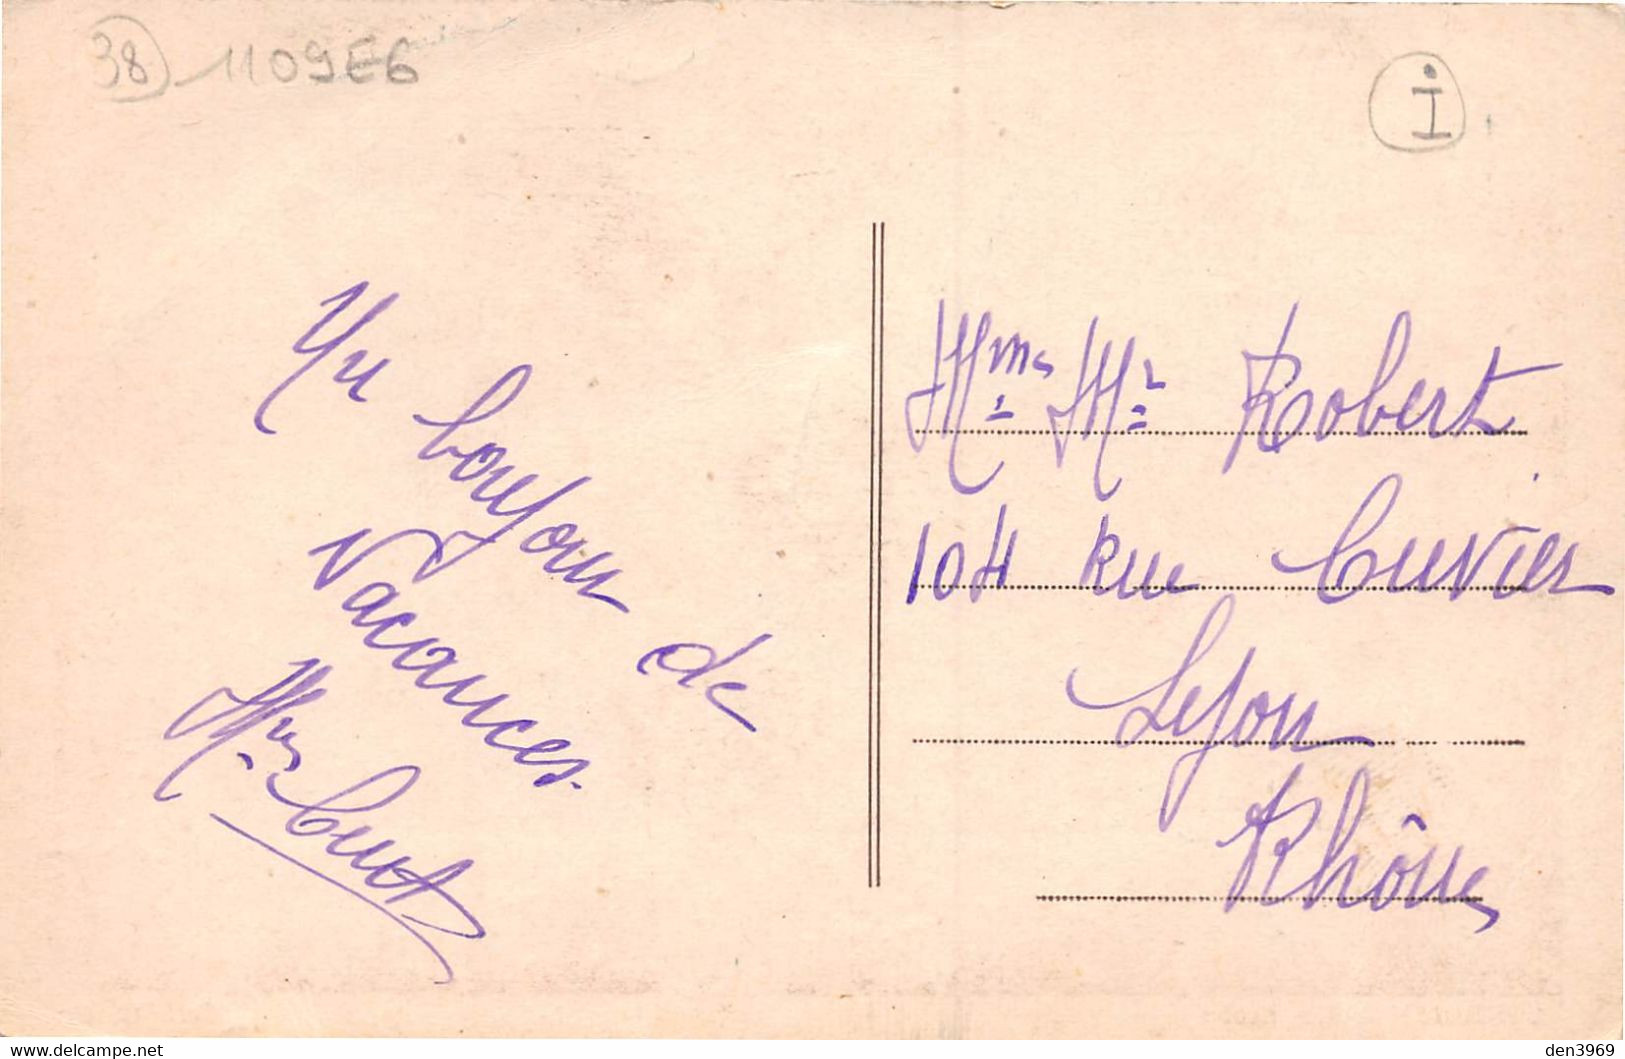 38 1109E6
i
Un bonjour de
Vacances.
Mme Cuct
Mme Mr Robert
104 Rue Cuvier
Lyon
Rhône
www.delcampe.net
den3969